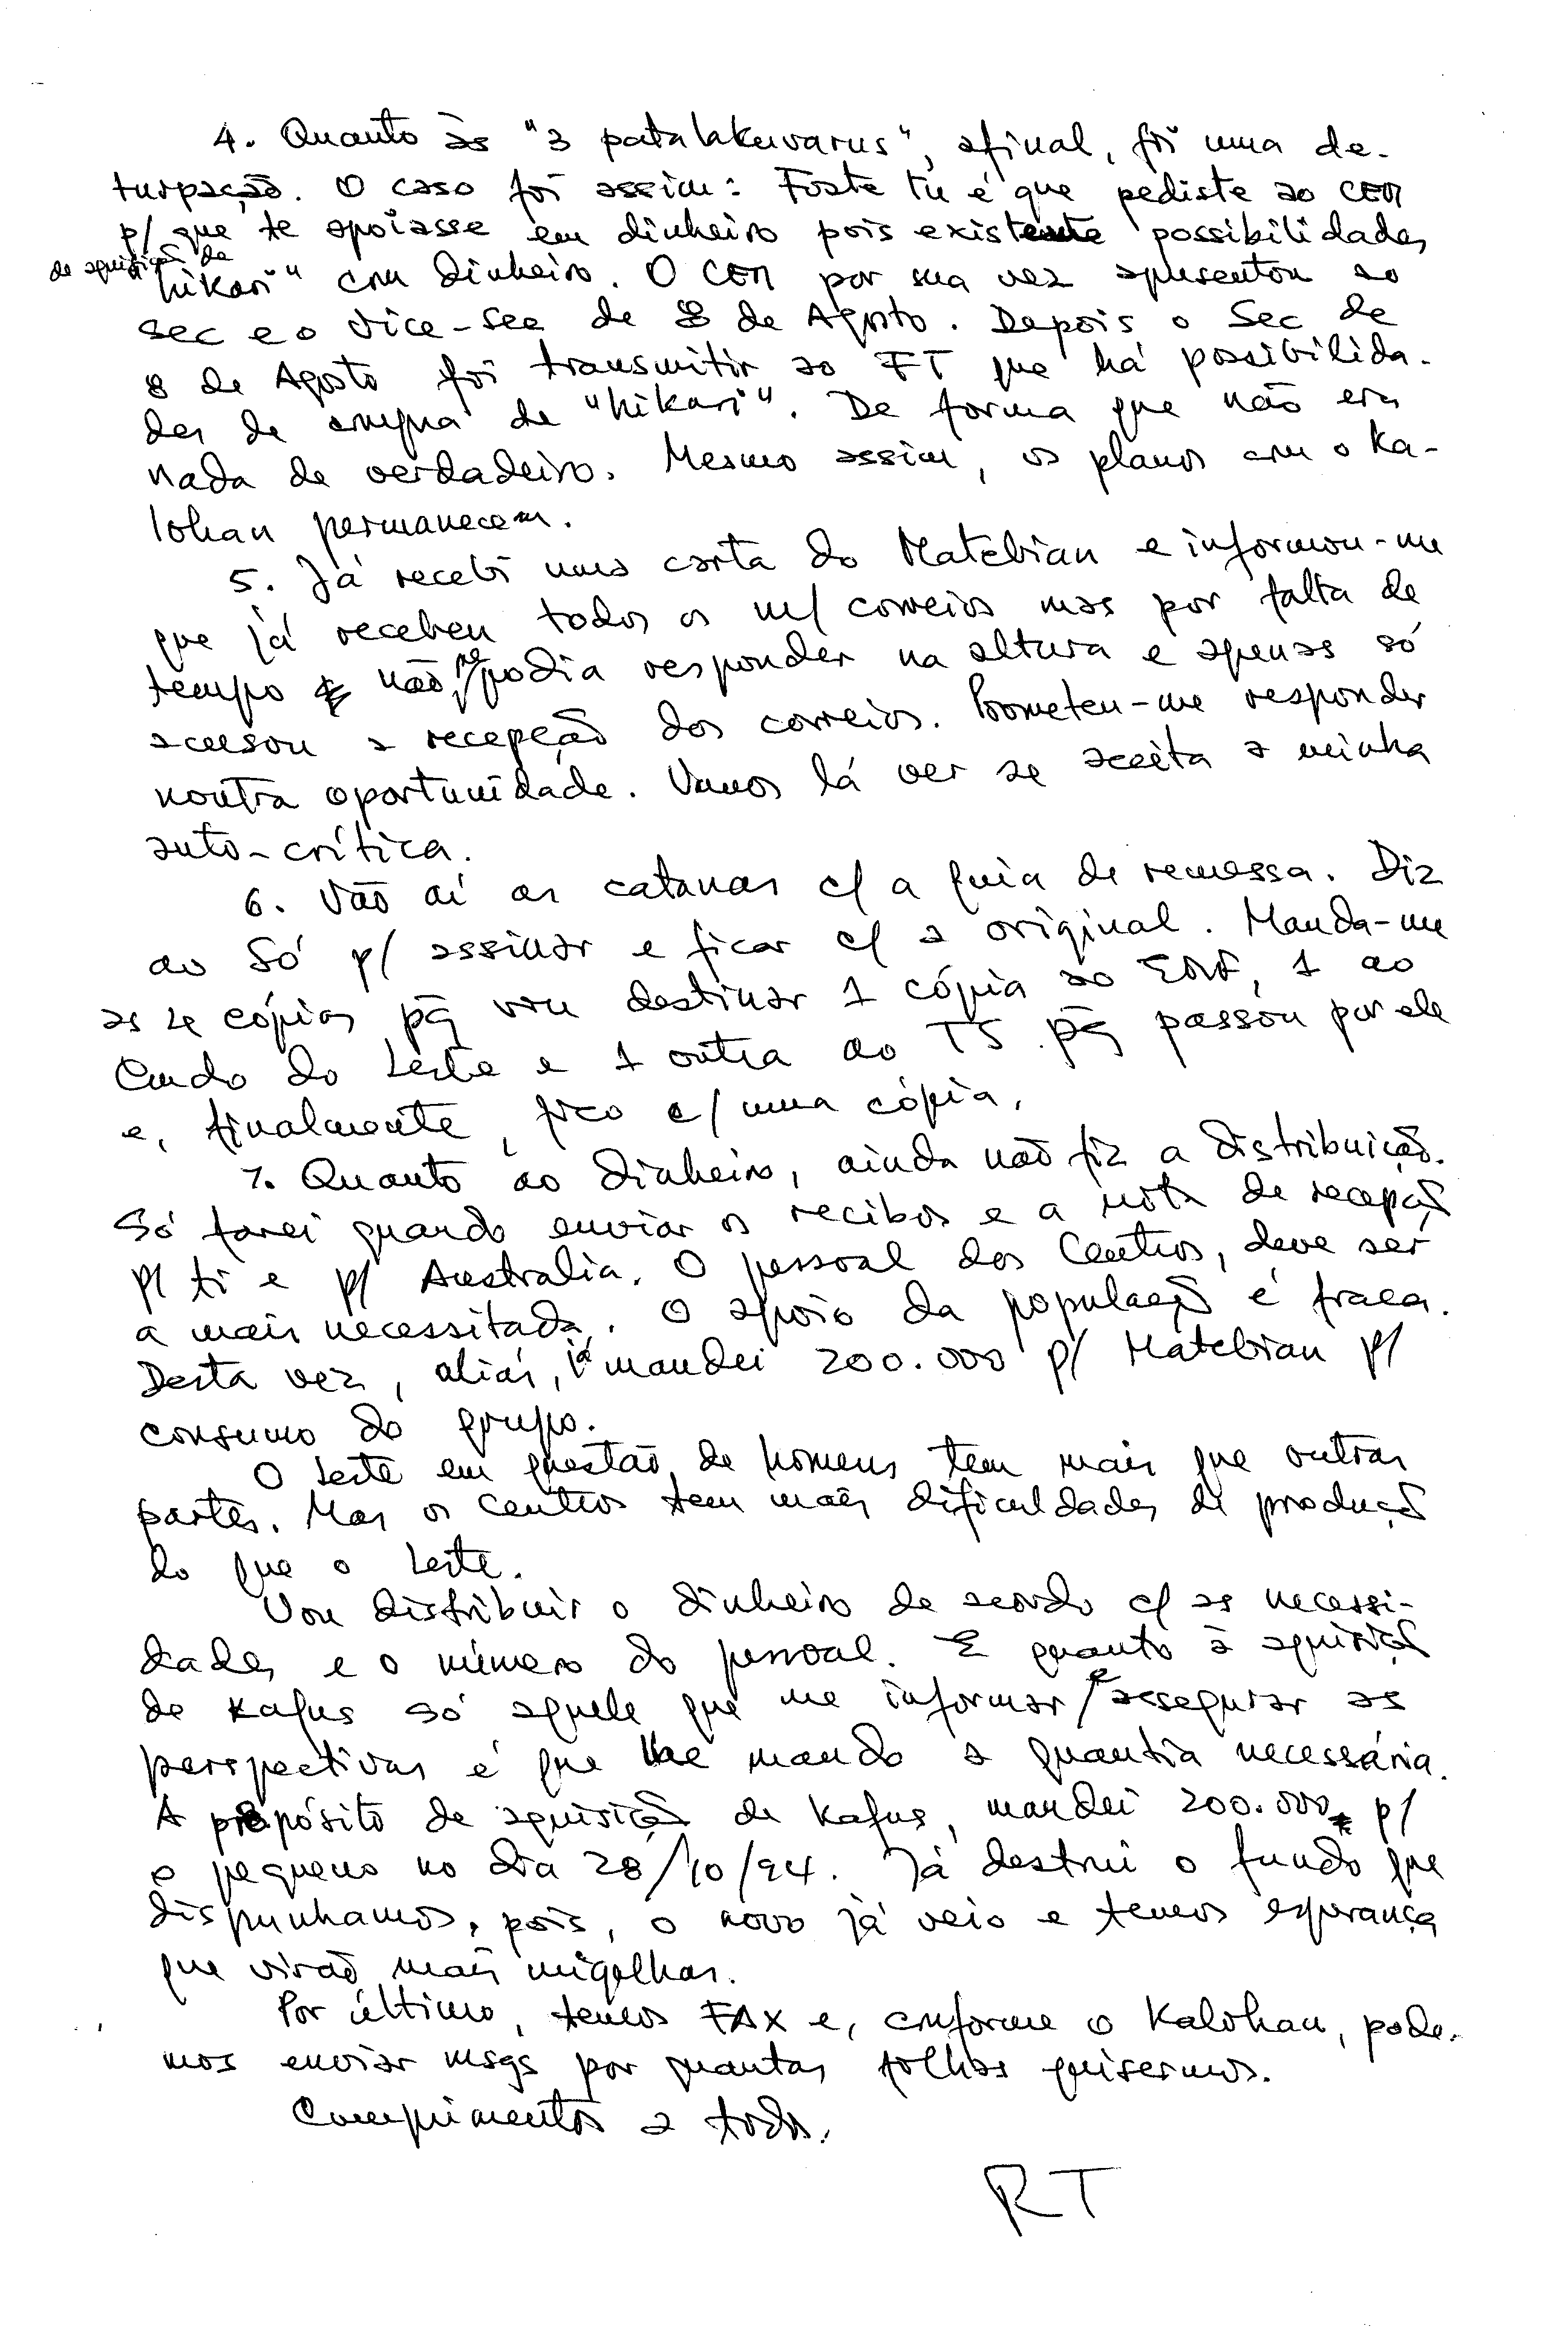 4. Quanto às "3 patalakuvarus", afinal, foi uma de-
turpação. O caso foi assim: Foste tu é que pediste ao CEM
p/ que te apoiasse em dinheiro pois existente possibilidades
de aquisição de
"hikari" com dinheiro. O CEM por sua vez apresentou ao
sec e o vice-sec de 8 de Agosto. Depois o Sec de
8 de Agosto foi transmitir ao FT que há possibilida-
des de compra de "hikari". De forma que não era
nada de verdadeiro. Mesmo assim, os planos com o Ka-
lohan permanecem.
5. Já recebi uma carta do Matebian e informou-me
que já recebeu todos os m/ correios mas por falta de
tempo não me podia responder na altura e apenas só
acusou a recepção dos correios. Prometeu-me responder
noutra oportunidade. Vamos lá ver se aceita a minha
auto-crítica.
6. Vão aí as catanas c/ a guia de remessa. Diz
ao Só p/ assinar e ficar c/ a original. Manda-me
as 4 cópias pq̄ vou destinar 1 cópia ao 1 ao
Cmdo do Leste e 1 outra ao TS pq̄ passou por ele
e, finalmente, fico c/ uma cópia.
7. Quanto ao dinheiro, ainda não fiz a distribuição.
Só farei quando enviar os recibos e a nota de recepção
p/ ti e p/ Australia. O pessoal dos Centros, deve ser
a mais necessitada. O apoio da população é fraca.
Desta vez, aliás, já mandei 200.000 p/ Matebian p/
consumo do grupo.
O Leste em questão de homens tem mais que outras
partes. Mas os centros tem mais dificuldades de produção
do que o Leste.
Vou distribuir o dinheiro de acordo c/ as necessi-
dades e o número do pessoal. E quanto à aquisição
de kafus só aquele que me informar/e assegurar as
perspectivas é que lhe mando a quantia necessária.
A propósito de aquisição de kafus, mandei 200.000 p/
o pequeno no dia 28/10/94. Já destrui o fundo que
dispunhamos, pois, o novo já veio e temos esperança
que virão mais migalhas.
Por último, temos FAX e, conforme o Kalohan, pode-
mos enviar msgs por quantas folhas quisermos.
Comprimentos a todos.
RT